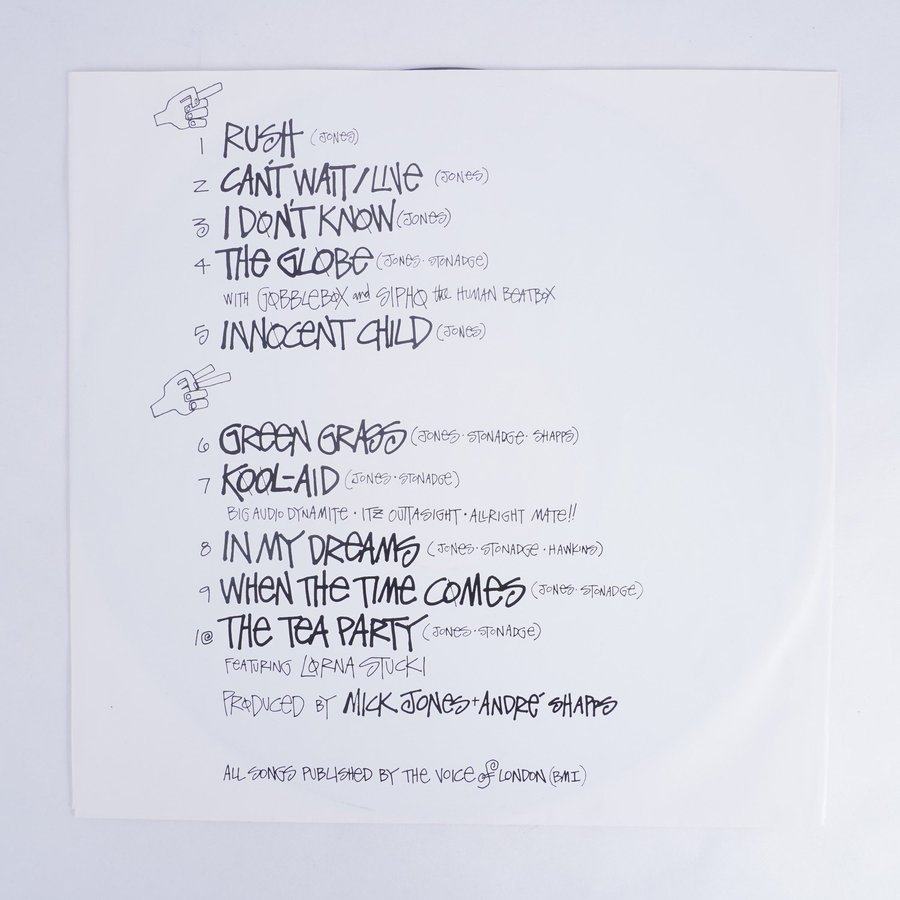 1 RUSH (JONES)
2 CAN'T WAIT/LIVE (JONES)
3 I DON'T KNOW (JONES)
4 THE GLOBE (JONES · STONADGE)
WITH GOBBLEBOX and SIPHO the HUMAN BEATBOX
5 INNOCENT CHILD (JONES)
6 GREEN GRASS (JONES · STONADGE · SHAPPS)
7 KOOL-AID (JONES · STONADGE)
BIG AUDIO DYNAMITE · ITZ OUTTASIGHT · ALLRIGHT MATE!!
8 IN MY DREAMS (JONES · STONADGE · HAWKINS)
9 WHEN THE TIME COMES (JONES · STONADGE)
10 THE TEA PARTY (JONES · STONADGE)
FEATURING LORNA STUCKI
PRODUCED BY MICK JONES + ANDRÉ SHAPPS
ALL SONGS PUBLISHED BY THE VOICE of LONDON (BMI)